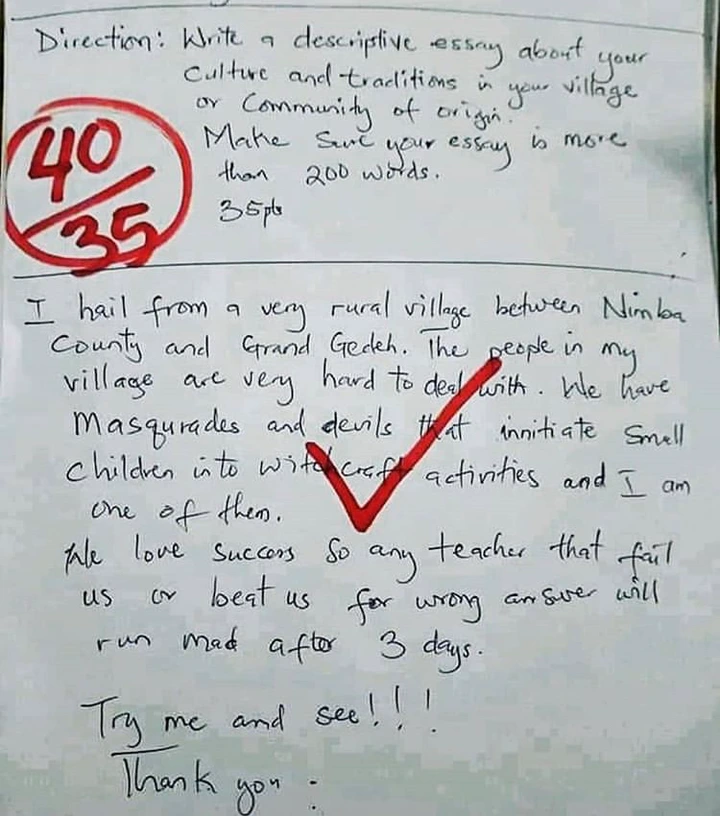 Direction: Write a descriptive essay about your
Culture and traditions in your village
or Community of origin.
Make Sure your essay is more
than 200 words.
35pts
40
35
I hail from a very rural village between Nimba
County and Grand Gedeh. The people in my
village are very hard to deal with. We have
Masqurades and devils that innitiate Small
Children into witchcraft activities and I am
one of them.
We love success so any teacher that fail
us or beat us for wrong answer will
run mad after 3 days.
Try me and see!!!
Thank you :